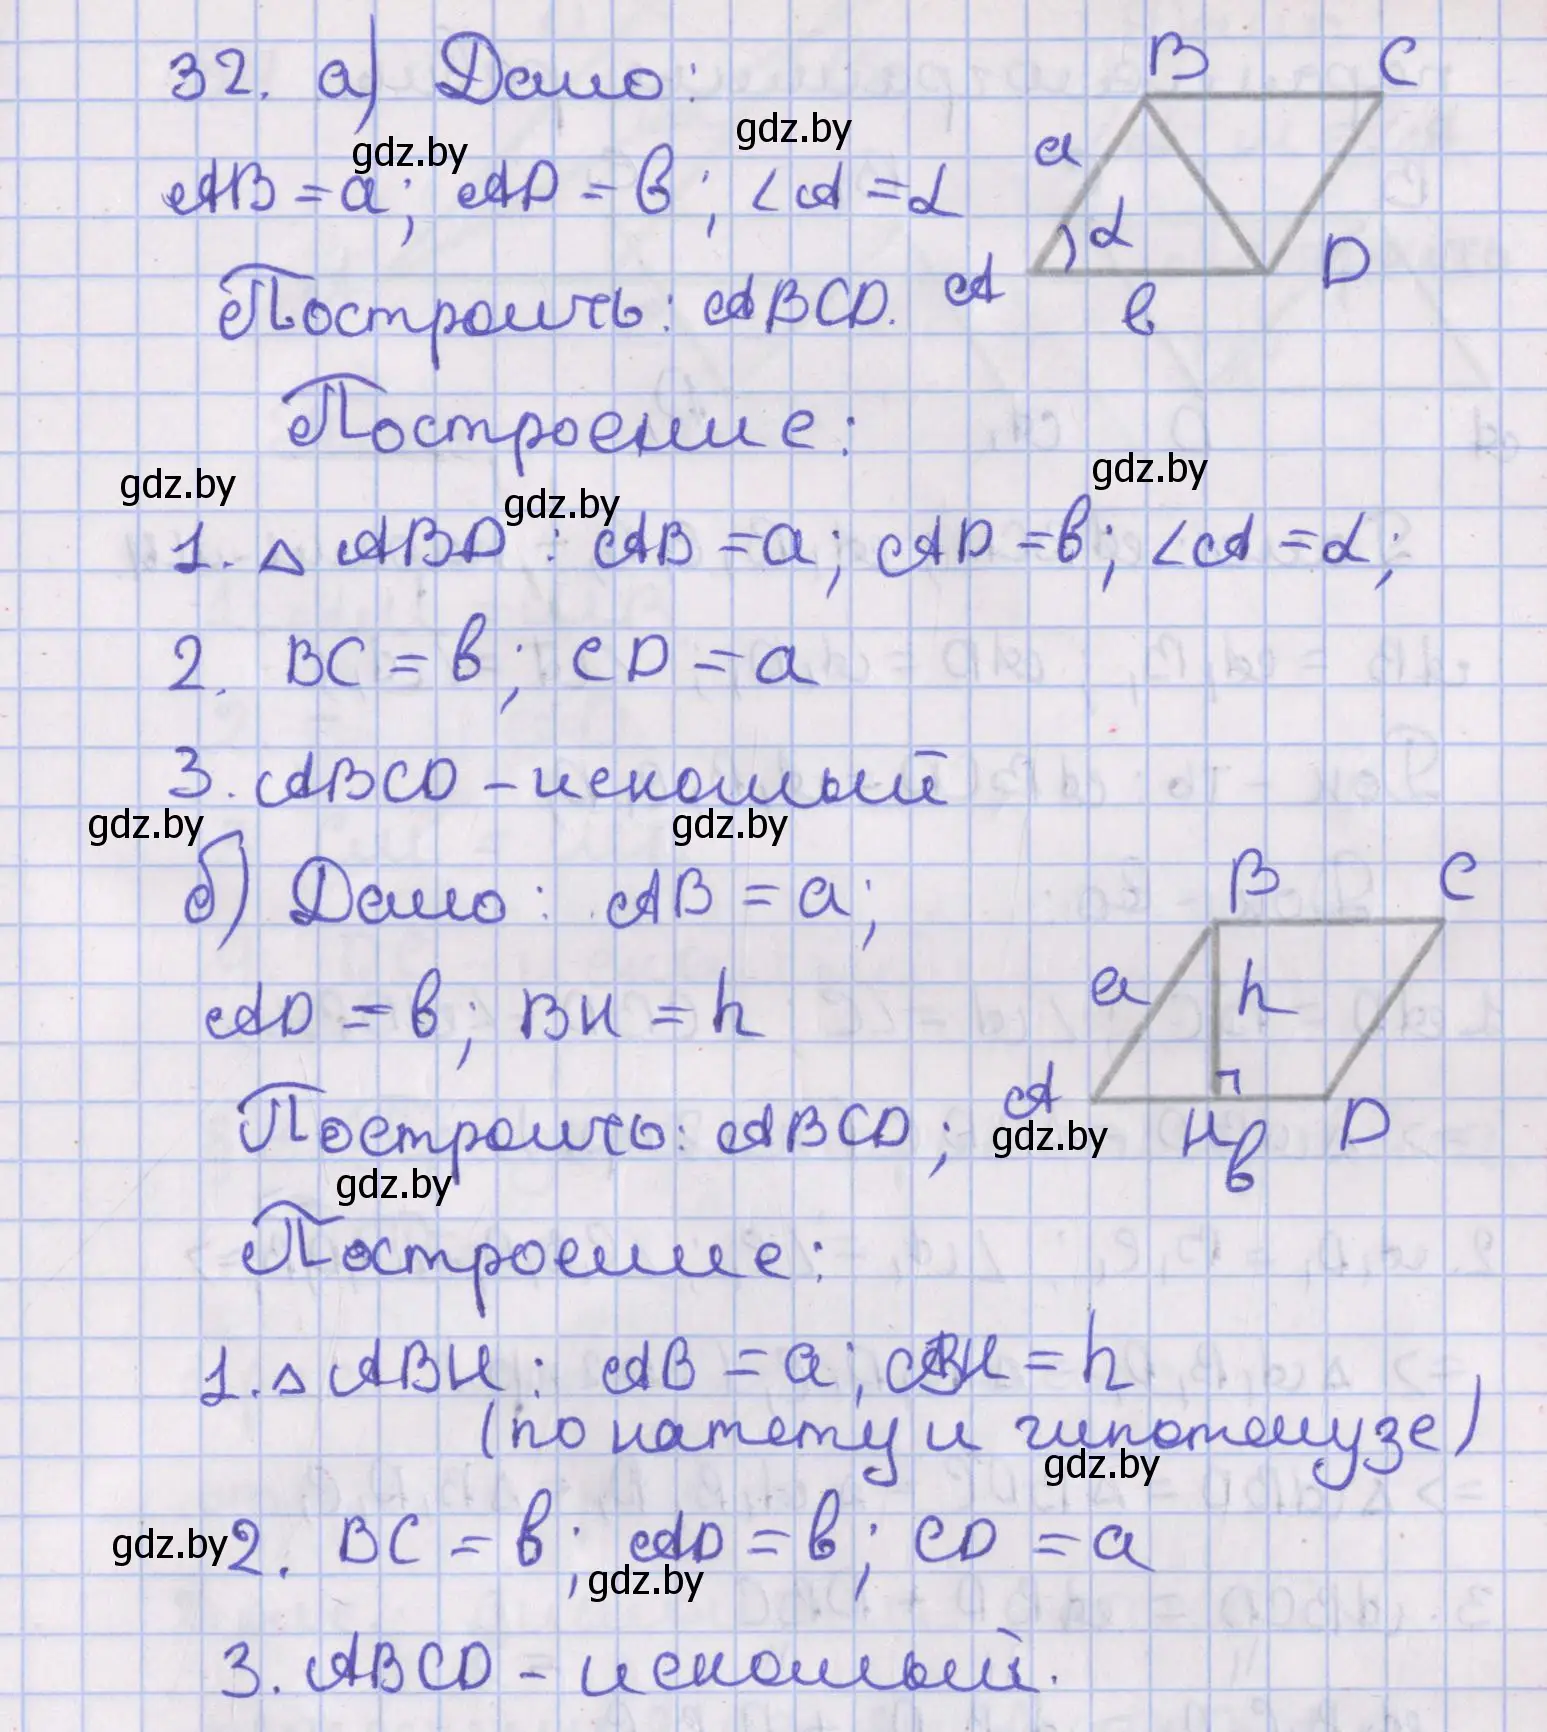 32. а) Дано:
AB = a; AD = b; ∠A = α
Построить: ABCD.
B C
a
α
A D
b
Построение:
1. △ ABD : AB = a; AD = b; ∠A = α;
2. BC = b; CD = a
3. ABCD – искомый
б) Дано: AB = a;
AD = b; BH = h
Построить: ABCD;
B C
a h
A H D
b
Построение:
1. △ ABH : AB = a; BH = h
(по катету и гипотенузе)
2. BC = b; AD = b; CD = a
3. ABCD – искомый.
gdz.by
gdz.by
gdz.by
gdz.by
gdz.by
gdz.by
gdz.by
gdz.by
gdz.by
gdz.by
gdz.by
gdz.by